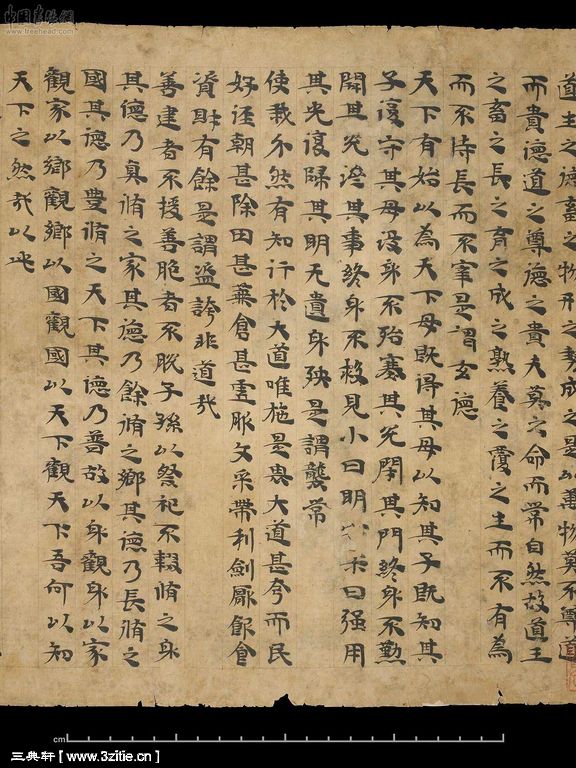 中国书法網
www.freehead.com
道生之德畜之物形之勢成之是以萬物莫不尊道
而貴德道之尊德之貴夫莫之命而常自然故道生
之畜之長之育之成之熟養之覆之生而不有為
而不恃長而不宰是謂玄德
天下有始以為天下母既得其母以知其子既知其
子復守其母没身不殆塞其兌閉其門終身不勤
開其兌濟其事終身不救見小曰明柔曰强用
其光復歸其明无遺身殃是謂襲常
使我介然有知行於大道唯施是畏大道甚夷而民
好徑朝甚除田甚蕪倉甚虛服文采帶利劍厭飲食
資財有餘是謂盜誇非道哉
善建者不拔善抱者不脫子孫以祭祀不輟脩之身
其德乃真脩之家其德乃餘脩之鄉其德乃長脩之
國其德乃豊脩之天下其德乃普故以身觀身以家
觀家以鄉觀鄉以國觀國以天下觀天下吾何以知
天下之然哉以此
cm
三典轩【www.3zitie.cn】